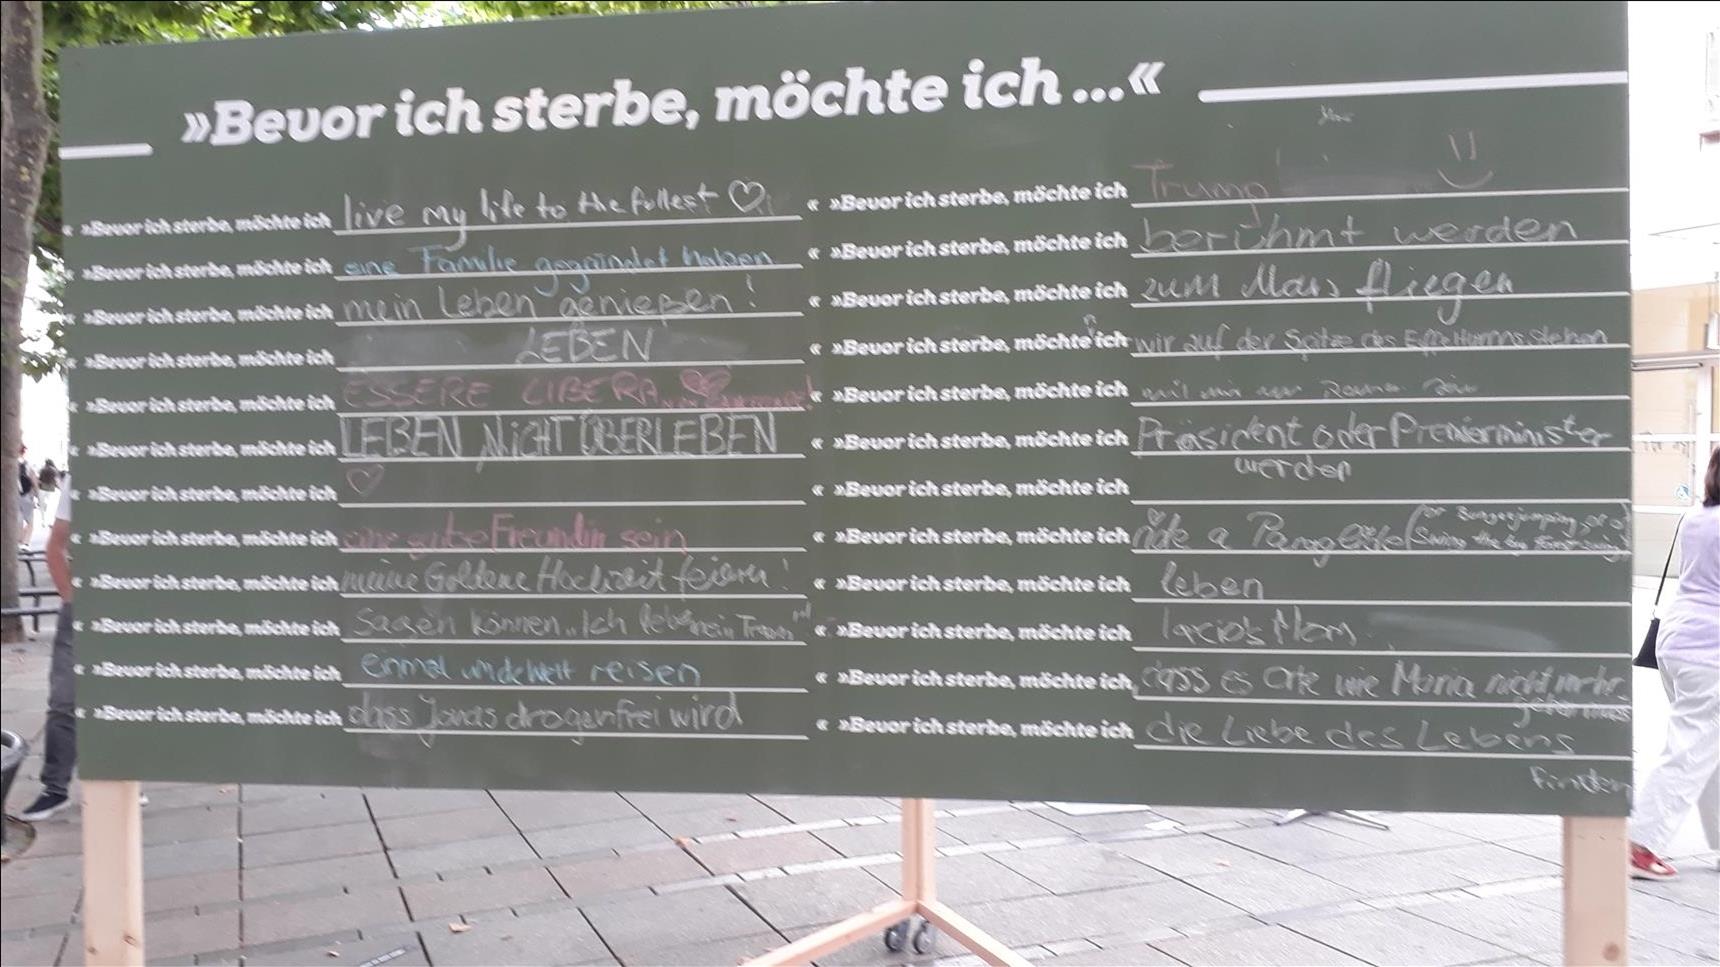 »Bevor ich sterbe, möchte ich ...«
»Bevor ich sterbe, möchte ich live my life to the fullest ♡ «
»Bevor ich sterbe, möchte ich eine Familie gegründet haben «
»Bevor ich sterbe, möchte ich mein Leben genießen! «
»Bevor ich sterbe, möchte ich LEBEN «
»Bevor ich sterbe, möchte ich ESSERE LIBERA «
»Bevor ich sterbe, möchte ich LEBEN NICHT ÜBERLEBEN «
»Bevor ich sterbe, möchte ich ♡ «
»Bevor ich sterbe, möchte ich eine gute Freundin sein «
»Bevor ich sterbe, möchte ich meine Goldene Hochzeit feiern! «
»Bevor ich sterbe, möchte ich sagen können „Ich lebe mein Traum" «
»Bevor ich sterbe, möchte ich einmal um die Welt reisen «
»Bevor ich sterbe, möchte ich dass Jonas drogenfrei wird «
»Bevor ich sterbe, möchte ich Trump
»Bevor ich sterbe, möchte ich berühmt werden
»Bevor ich sterbe, möchte ich zum Mars fliegen
»Bevor ich sterbe, möchte ich wir auf der Spitze des Eiffelturms stehen
»Bevor ich sterbe, möchte ich
»Bevor ich sterbe, möchte ich Präsident oder Premierminister
werden
»Bevor ich sterbe, möchte ich
»Bevor ich sterbe, möchte ich ride a (or Bungeejumping or a
Swing the big
»Bevor ich sterbe, möchte ich leben
»Bevor ich sterbe, möchte ich
»Bevor ich sterbe, möchte ich dass es Orte wie Moria nicht mehr
geben muss
»Bevor ich sterbe, möchte ich die Liebe des Lebens
finden